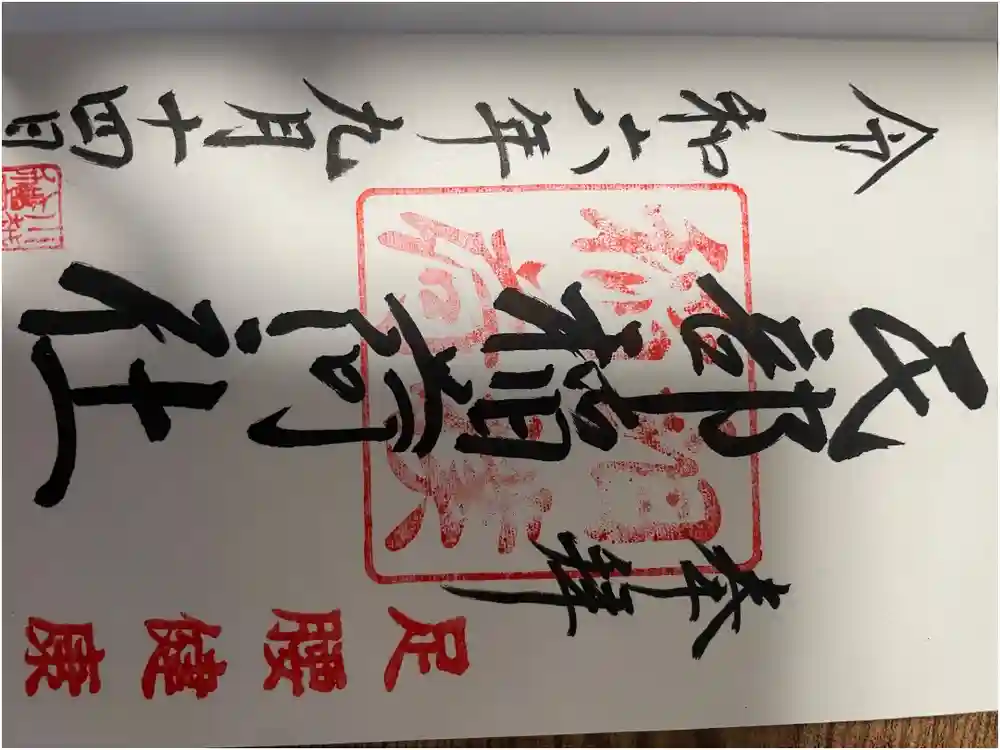 足腰健康
奉拝
民部稲荷神社
令和六年九月十四日